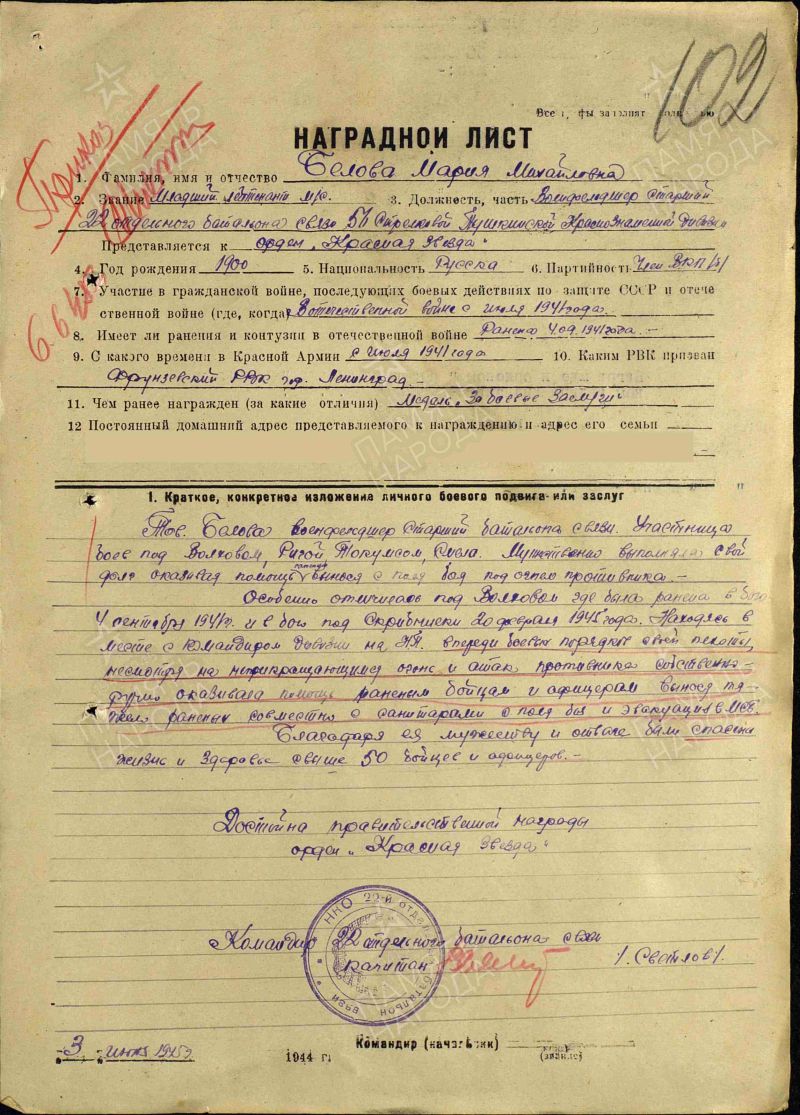 102
Все графы заполнять полностью
НАГРАДНОЙ ЛИСТ
1. Фамилия, имя и отчество Белова Мария Михайловна
2. Звание Младший лейтенант м/с. 3. Должность, часть Военфельдшер Старший
22 отдельного батальона связи 56 Стрелковой Пушкинской Краснознаменной дивизии
Представляется к орден "Красная Звезда"
4. Год рождения 1900 5. Национальность Русска 6. Партийность Член ВКП/б/
7. Участие в гражданской войне, последующих боевых действиях по защите СССР и отече
ственной войне (где, когда) В отечественной войне с июля 1941 года.
8. Имеет ли ранения и контузии в отечественной войне Ранена 4.09.1941 года. -
9. С какого времени в Красной Армии с июля 1941 года 10. Каким РВК призван
Фрунзевский РВК гор. Ленинград. -
11. Чем ранее награжден (за какие отличия) Медаль "За боевые Заслуги"
12 Постоянный домашний адрес представляемого к награждению и адрес его семьи
I. Краткое, конкретное изложение личного боевого подвига или заслуг
Тов. Белова военфельдшер Старший батальона связи. Участница
боев под Волховом, Ригой Токумсом, Мужественно выполняла свой
долг оказывая помощь вынося с поля боя под огнем противника. -
Особенно отличилась под Волховом где была ранена в бою
4 сентября 1941 г. и в бою под 20 февраля 1945 года. Находясь в
месте с командиром дивизии на НП. впереди боевых порядков своей пехоты,
несмотря на огонь и атак противника собственно-
ручно оказывала помощь раненым бойцам и офицерам вынося тя-
жел раненых совместно с санитарами с поля боя и эвакуация в МСБ.
Благодаря ея мужеству и отваге были спасены
жизнь и здоровье свыше 50 бойцев и офицеров. -
Достойна правительственной награды
орден "Красная Звезда"
Командир 22 отдельного батальона связи
капитан /Светлов/.
НКО 22-й отдельный батальон связи
Командир (начальник)
(звание)
3 июня 1945 г.
1944 г.
Приказ
6.6.45
ПАМЯТЬ НАРОДА